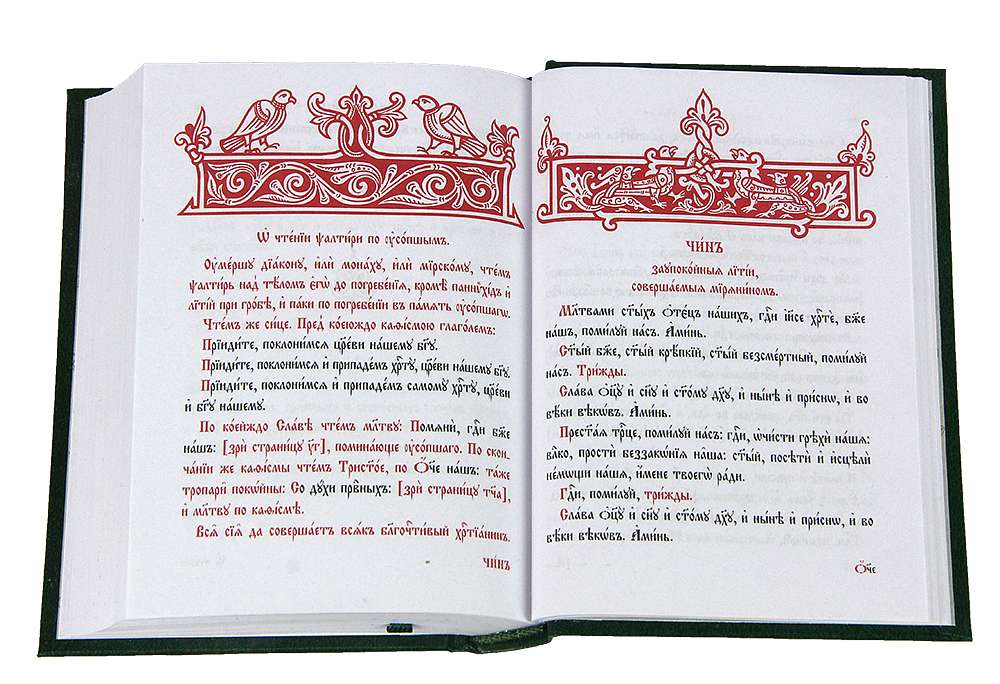 Ѡ҆ чте́нїи ѱалти́ри по ᲂу҆со́пшымъ.
Оу҆ме́ршу дїа́кону, и҆лѝ мона́ху, и҆лѝ мїрско́му, чте́мъ
ѱалти́рь над̾ тѣ́ломъ є҆гѡ̀ до погребе́нїѧ, кромѣ̀ паннѷхі́дъ и҆
лїті́й при гро́бѣ, и҆ па́ки по погребе́нїи въ па́мѧть ᲂу҆со́пшагѡ.
Чте́мъ же си́це. Пред̾ ко́еюждо каѳі́смою глаго́лемъ:
Прїиди́те, поклони́мсѧ цр҃е́ви на́шему бг҃у.
Прїиди́те, поклони́мсѧ и҆ припаде́мъ хрⷭ҇ту̀, цр҃е́ви на́шему бг҃у.
Прїиди́те, поклони́мсѧ и҆ припаде́мъ самому̀ хрⷭ҇ту̀, цр҃е́ви
и҆ бг҃у на́шему.
По ко́ейждо Сла́вѣ чте́мъ мл҃тву: Помѧнѝ, гдⷭ҇и бж҃е
на́шъ: [зрѝ страни́цу у҃г], помина́юще ᲂу҆со́пшаго. По скон-
ча́нїи же каѳі́смы чте́мъ Трист҃о́е, по Ѻ҆́ч҃е на́шъ: та́же
тропари̑ поко́йны: Со дꙋ́хи првⷣными: [зрѝ страни́цу тч҃а],
и҆ мл҃тву по каѳі́смѣ.
Всѧ̑ сїѧ̑ да соверша́етъ всѧ́къ благочⷭ҇ти́вый хрⷭ҇тїа́нинъ.
чи́нъ
ЧИ́НЪ
заупоко́йныѧ лїті́и,
соверша́емыѧ мїрѧни́номъ.
Мл҃твами ст҃ы́хъ ѻ҆тє́цъ на́шихъ, гдⷭ҇и і҆и҃се хрⷭ҇тѐ, бж҃е
на́шъ, поми́луй на́съ. А҆ми́нь.
Ст҃ы́й бж҃е, ст҃ы́й крѣ́пкїй, ст҃ы́й безсме́ртный, поми́луй
на́съ. Три́жды.
Сла́ва ѻ҆ц҃у̀ и҆ сн҃у и҆ ст҃о́му дх҃у, и҆ ны́нѣ и҆ при́снѡ, и҆ во
вѣ́ки вѣкѡ́въ. А҆ми́нь.
Прест҃а́ѧ трⷪ҇це, поми́луй на́съ: гдⷭ҇и, ѡ҆чи́сти грѣхѝ на́шѧ:
влⷣко, простѝ беззакѡ́нїѧ на̑ша: ст҃ы́й, посѣтѝ и҆ и҆сцѣлѝ
не́мѡщи на́шѧ, и҆́мене твоегѡ̀ ра́ди.
Гдⷭ҇и, поми́луй, три́жды.
Сла́ва ѻ҆ц҃у̀ и҆ сн҃у и҆ ст҃о́му дх҃у, и҆ ны́нѣ и҆ при́снѡ, и҆ во
вѣ́ки вѣкѡ́въ. А҆ми́нь.
Ѻ҆́ч҃е